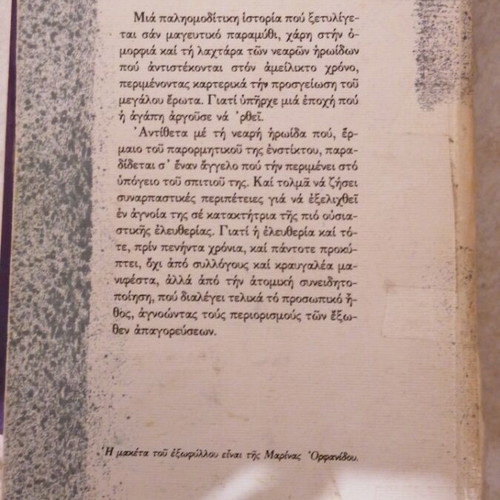 Μιά παληομοδίτικη ἱστορία πού ξετυλίγε-
ται σάν μαγευτικό παραμύθι, χάρη στήν ὀ-
μορφιά καί τή λαχτάρα τῶν νεαρῶν ἡρωίδων
πού ἀντιστέκονται στόν ἀμείλικτο χρόνο,
περιμένοντας καρτερικά τήν προσγείωση τοῦ
μεγάλου ἔρωτα. Γιατί ὑπῆρχε μιά ἐποχή πού
ἡ ἀγάπη ἀργοῦσε νά 'ρθεῖ.
Ἀντίθετα μέ τή νεαρή ἡρωίδα πού, ἕρ-
μαιο τοῦ παρορμητικοῦ της ἐνστίκτου, παρα-
δίδεται σ' ἕναν ἄγγελο πού τήν περιμένει στό
ὑπόγειο τοῦ σπιτιοῦ της. Καί τολμᾶ νά ζήσει
συναρπαστικές περιπέτειες γιά νά ἐξελιχθεῖ
ἐν ἀγνοία της σέ κατακτήτρια τῆς πιό οὐσια-
στικῆς ἐλευθερίας. Γιατί ἡ ἐλευθερία καί τό-
τε, πρίν πενήντα χρόνια, καί πάντοτε προκύ-
πτει, ὄχι ἀπό συλλόγους καί κραυγαλέα μα-
νιφέστα, ἀλλά ἀπό τήν ἀτομική συνειδητο-
ποίηση, πού διαλέγει τελικά τό προσωπικό ἦ-
θος, ἀγνοώντας τούς περιορισμούς τῶν ἔξω-
θεν ἀπαγορεύσεων.
Ἡ μακέτα τοῦ ἐξωφύλλου εἶναι τῆς Μαρίνας Ὀρφανίδου.